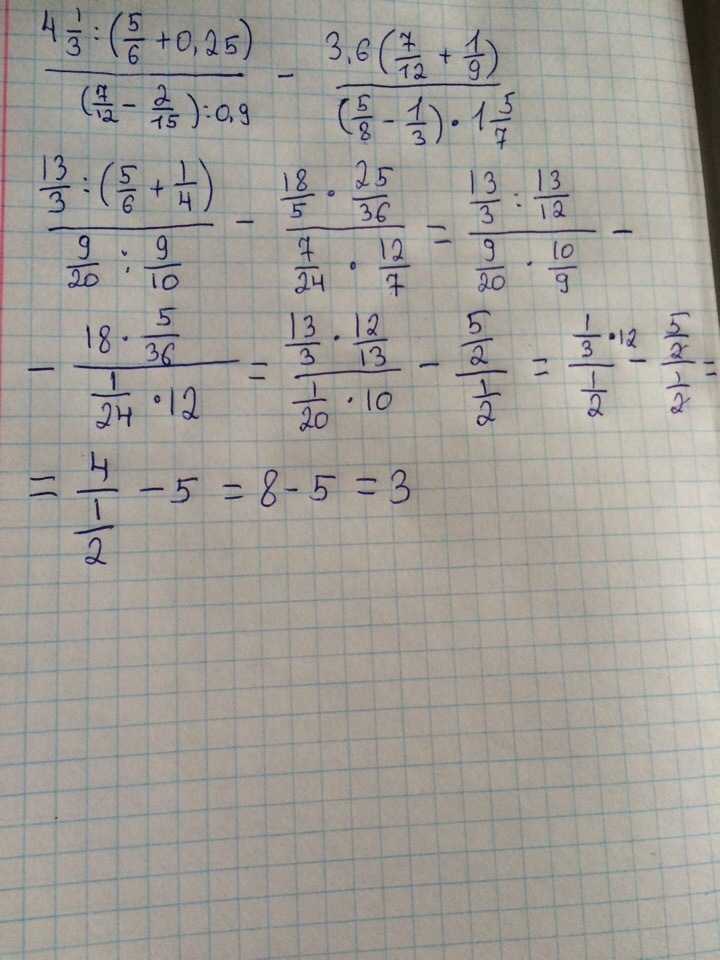 4 1/3 : (5/6 + 0,25) / (7/12 - 2/15) : 0,9 - 3,6 (7/12 + 1/9) / (5/8 - 1/3) · 1 5/7
13/3 : (5/6 + 1/4) / 9/20 : 9/10 - 18/5 · 25/36 / 7/24 · 12/7 = 13/3 : 13/12 / 9/20 · 10/9 -
- 18 · 5/36 / 1/24 · 12 = 13/3 · 12/13 / 1/20 · 10 - 5/2 / 1/2 = 1/3 · 12 / 1/2 - 5/2 / 1/2 =
= 4 / 1/2 - 5 = 8 - 5 = 3